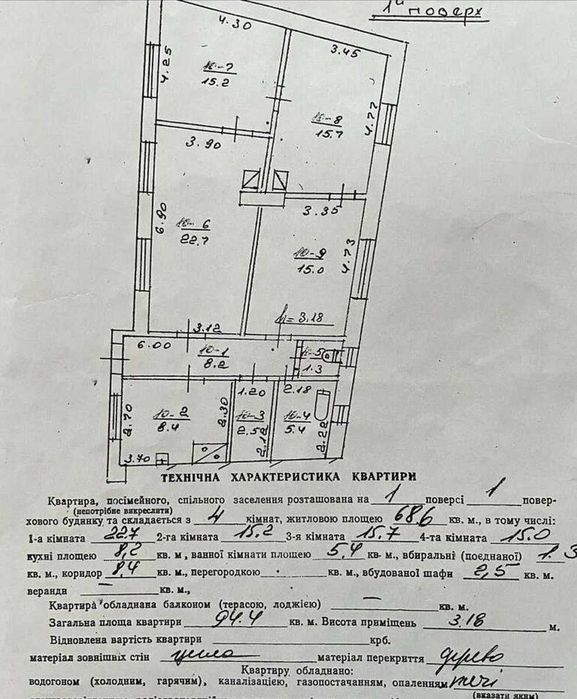 1й поверх
4.30
3.45
4.25
10-7
15.2
10-8
15.7
4.77
3.90
6.90
10-6
22.7
3.35
10-9
15.0
4.73
h=3.18
3.12
6.00
10-1
8.2
10-5
1.3
1.20
2.18
2.70
10-2
8.4
2.30
10-3
2.5
2.12
10-4
5.4
2.22
3.70
ТЕХНІЧНА ХАРАКТЕРИСТИКА КВАРТИРИ
Квартира, посімейного, спільного заселення розташована на 1 поверсі 1 повер-
(непотрібне викреслити)
хового будинку та складається з 4 кімнат, житловою площею 68.6 кв. м., в тому числі:
1-а кімната 22.7 2-га кімната 15.2 3-я кімната 15.7 4-та кімната 15.0
кухні площею 8,2 кв. м , ванної кімнати площею 5,4 кв. м., вбиральні (поєднаної) 1.3
кв. м., коридор 8,4 кв. м., перегородкою — кв. м., вбудованої шафи 2,5 кв. м.
веранди — кв. м.,
Квартира обладнана балконом (терасою, лоджією) — кв. м.
Загальна площа квартири 94.4 кв. м. Висота приміщень 3.18 м.
Відновлена вартість квартири крб.
матеріал зовнішніх стін цегла матеріал перекриття дерево
Квартиру обладнано:
водогоном (холодним, гарячим), каналізацією, газопостачанням, опаленням печі
(вказати яким)